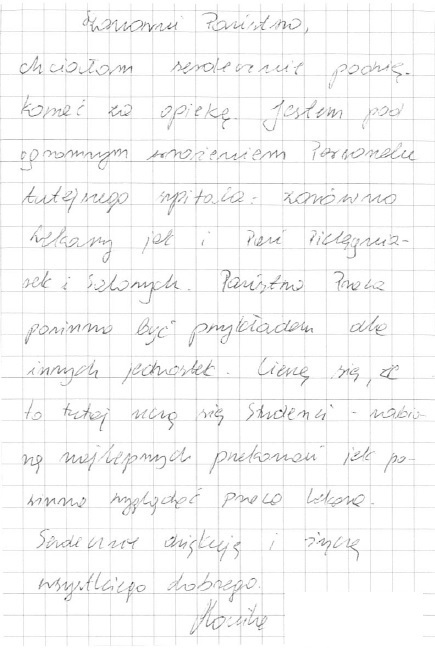 Szanowni Państwo,
chciałam serdecznie podzię-
kować za opiekę. Jestem pod
ogromnym wrażeniem Personelu
tutejszego szpitala: zarówno
Lekarzy jak i Pań Pielęgnia-
rek i Salowych. Państwa Praca
powinna być przykładem dla
innych jednostek. Cieszę się, że
to tutaj uczą się Studenci - nabio-
rą najlepszych przekonań jak po-
winna wyglądać praca Lekarza.
Serdecznie dziękuję i życzę
wszystkiego dobrego.
Monika